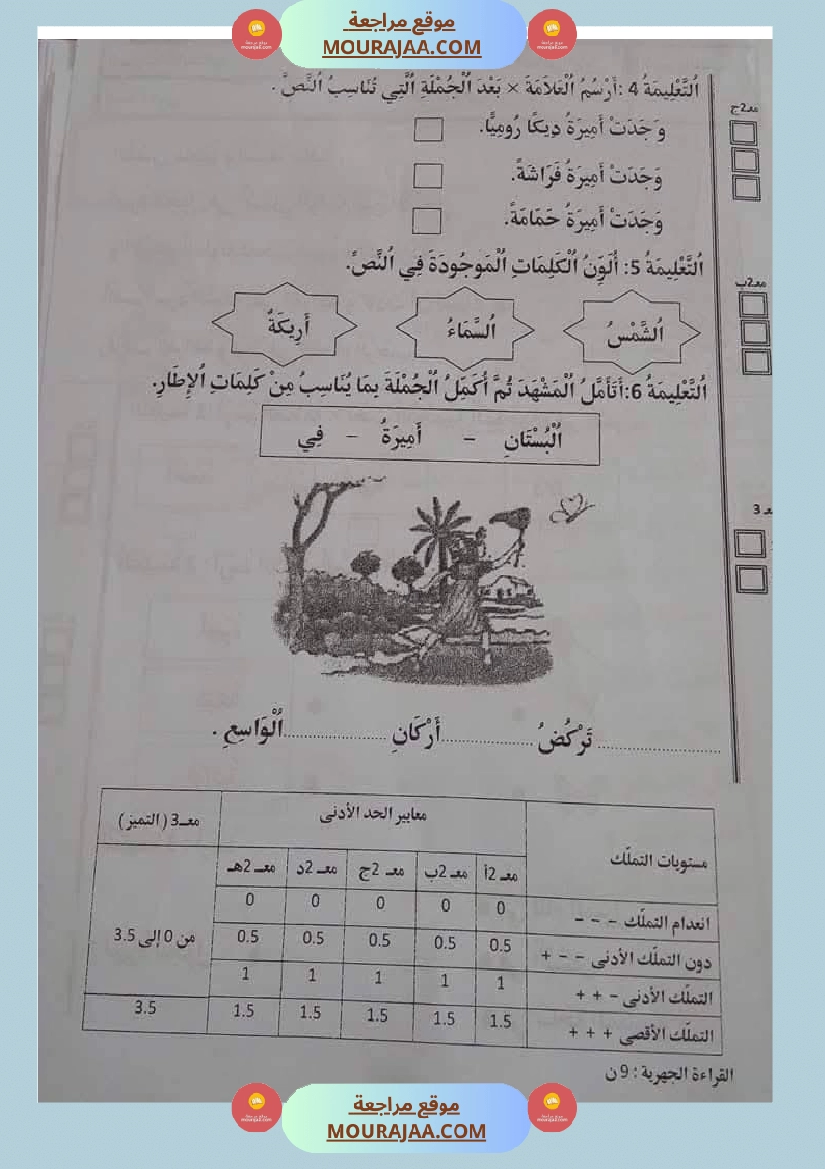 موقع مراجعة
MOURAJAA.COM
اَلتَّعْلِيمَةُ 4 :أَرْسُمُ اُلْعَلاَمَةَ × بَعْدَ اُلْجُمْلَةِ اُلَّتِي تُنَاسِبُ اُلنَّصَّ .
معـ2ج
وَجَدَتْ أَمِيرَةُ دِيكًا رُومِيًّا.
وَجَدَتْ أَمِيرَةُ فَرَاشَةً.
وَجَدَتْ أَمِيرَةُ حَمَامَةً.
اَلتَّعْلِيمَةُ 5: أُلَوِّنُ اُلْكَلِمَاتِ اُلْمَوجُودَةَ فِي اُلنَّصِّ.
معـ2ب
اُلشَّمْسُ
اُلسَّمَاءُ
أَرِيكَةٌ
اَلتَّعْلِيمَةُ 6:أَتَأَمَّلُ اُلْمَشْهَدَ ثُمَّ أُكَمِّلُ اُلْجُمْلَةَ بِمَا يُنَاسِبُ مِنْ كَلِمَاتِ اُلإِطَارِ.
اُلْبُسْتَانِ - أَمِيرَةُ - فِي
معـ 3
.................... تَرْكُضُ .................... أَرْكَانِ .................... اُلْوَاسِعِ .
مستويات التملّك
معايير الحد الأدنى
معـ3 (التميز)
معـ 2أ معـ 2ب معـ 2ج معـ 2د معـ 2هـ
انعدام التملّك - - - 0 0 0 0 0
دون التملّك الأدنى - - + 0.5 0.5 0.5 0.5 0.5
من 0 إلى 3.5
التملّك الأدنى - + + 1 1 1 1 1
التملّك الأقصى + + + 1.5 1.5 1.5 1.5 1.5 3.5
القراءة الجهرية : 9ن
موقع مراجعة
MOURAJAA.COM